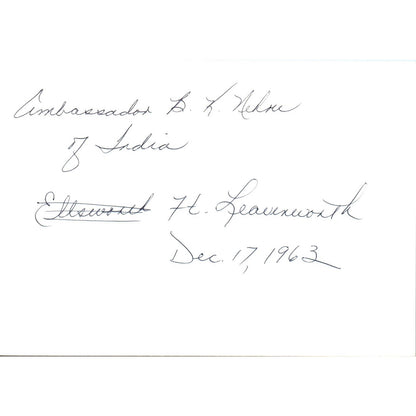 Ambassador B. K. Nehru
of India
Ellsworth Ft. Leavenworth
Dec. 17, 1963